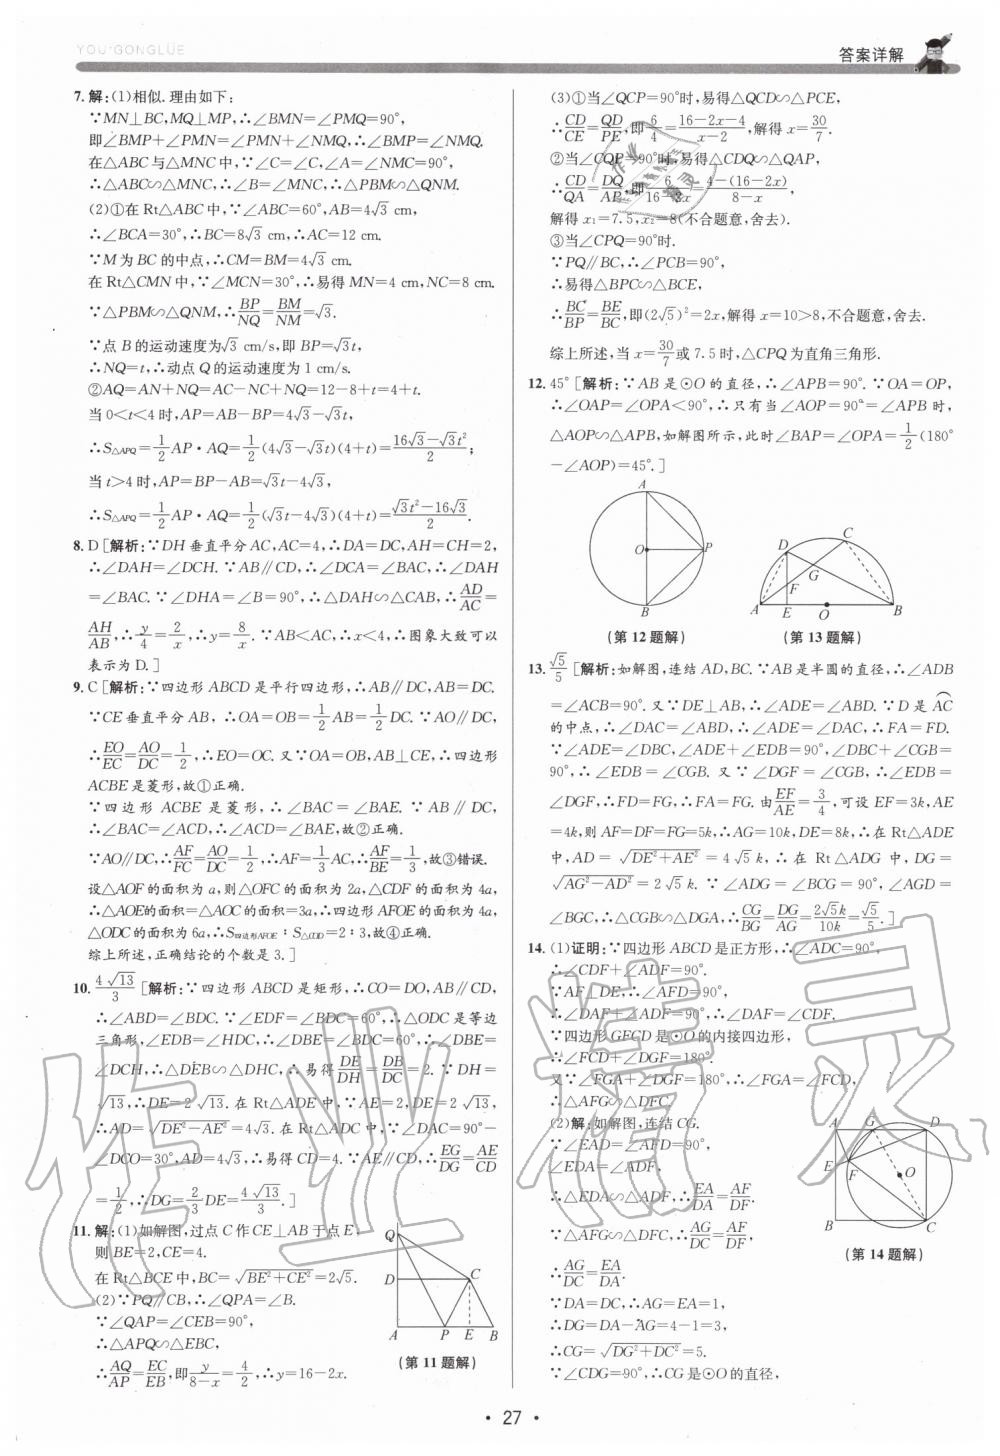 YOU·GONGLÜE
答案详解
7. 解:(1)相似. 理由如下:
∵MN⊥BC,MQ⊥MP,∴∠BMN=∠PMQ=90°,
即∠BMP+∠PMN=∠PMN+∠NMQ,∴∠BMP=∠NMQ.
在△ABC与△MNC中,∵∠C=∠C,∠A=∠NMC=90°,
∴△ABC∽△MNC,∴∠B=∠MNC,∴△PBM∽△QNM.
(2)①在Rt△ABC中,∵∠ABC=60°,AB=4√3 cm,
∴∠BCA=30°,∴BC=8√3 cm,∴AC=12 cm.
∵M为BC的中点,∴CM=BM=4√3 cm.
在Rt△CMN中,∵∠MCN=30°,∴易得MN=4 cm,NC=8 cm.
∵△PBM∽△QNM,∴BP/NQ=BM/NM=√3.
∵点B的运动速度为√3 cm/s,即BP=√3t,
∴NQ=t,∴动点Q的运动速度为1 cm/s.
②AQ=AN+NQ=AC-NC+NQ=12-8+t=4+t.
当0<t<4时,AP=AB-BP=4√3-√3t,
∴S△APQ=1/2AP·AQ=1/2(4√3-√3t)(4+t)=(16√3-√3t²)/2;
当t>4时,AP=BP-AB=√3t-4√3,
∴S△APQ=1/2AP·AQ=1/2(√3t-4√3)(4+t)=(√3t²-16√3)/2.
8. D[解析:∵DH垂直平分AC,AC=4,∴DA=DC,AH=CH=2,
∴∠DAH=∠DCH.∵AB∥CD,∴∠DCA=∠BAC,∴∠DAH
=∠BAC.∵∠DHA=∠B=90°,∴△DAH∽△CAB,∴AD/AC=
AH/AB,∴y/4=2/x,∴y=8/x.∵AB<AC,∴x<4,∴图象大致可以
表示为D.]
9. C[解析:∵四边形ABCD是平行四边形,∴AB∥DC,AB=DC.
∵CE垂直平分AB,∴OA=OB=1/2AB=1/2DC.∵AO∥DC,
∴EO/EC=AO/DC=1/2,∴EO=OC.又∵OA=OB,AB⊥CE,∴四边形
ACBE是菱形,故①正确.
∵四边形ACBE是菱形,∴∠BAC=∠BAE.∵AB∥DC,
∴∠BAC=∠ACD,∴∠ACD=∠BAE,故②正确.
∵AO∥DC,∴AF/FC=AO/DC=1/2,∴AF=1/3AC,∴AF/BE=1/3,故③错误.
设△AOF的面积为a,则△OFC的面积为2a,△CDF的面积为4a,
∴△AOE的面积=△AOC的面积=3a,∴四边形AFOE的面积为4a,
△ODC的面积为6a,∴S四边形AFOE∶S△COD=2∶3,故④正确.
综上所述,正确结论的个数是3.]
10. 4√13/3[解析:∵四边形ABCD是矩形,∴CO=DO,AB∥CD,
∴∠ABD=∠BDC.∵∠EDF=∠BDC=60°,∴△ODC是等边
三角形,∠EDB=∠HDC,∴∠DBE=∠BDC=60°,∴∠DBE=
∠DCH,∴△DEB∽△DHC,∴易得DE/DH=DB/DC=2.∵DH=
√13,∴DE=2√13.在Rt△ADE中,∵AE=2,DE=2√13,
∴AD=√(DE²-AE²)=4√3.在Rt△ADC中,∵∠DAC=90°-
∠DCO=30°,AD=4√3,∴易得CD=4.∵AE∥CD,∴EG/DG=AE/CD
=1/2,∴DG=2/3DE=4√13/3.]
11. 解:(1)如解图,过点C作CE⊥AB于点E,
则BE=2,CE=4.
在Rt△BCE中,BC=√(BE²+CE²)=2√5.
(2)∵PQ∥CB,∴∠QPA=∠B.
∵∠QAP=∠CEB=90°,
∴△APQ∽△EBC,
∴AQ/AP=EC/EB,即y/(8-x)=4/2,∴y=16-2x.
Q
D
C
A
P
E
B
(第11题解)
(3)①当∠QCP=90°时,易得△QCD∽△PCE,
∴CD/CE=QD/PE,即6/4=(16-2x-4)/(x-2),解得x=30/7.
②当∠CQP=90°时,易得△CDQ∽△QAP,
∴CD/QA=DQ/AP,即6/(16-2x)=(4-(16-2x))/(8-x),
解得x₁=7.5,x₂=8(不合题意,舍去).
③当∠CPQ=90°时.
∵PQ∥BC,∴∠PCB=90°,
∴易得△BPC∽△BCE,
∴BC/BP=BE/BC,即(2√5)²=2x,解得x=10>8,不合题意,舍去.
综上所述,当x=30/7或7.5时,△CPQ为直角三角形.
12. 45°[解析:∵AB是⊙O的直径,∴∠APB=90°.∵OA=OP,
∴∠OAP=∠OPA<90°,∴只有当∠AOP=90°=∠APB时,
△AOP∽△APB,如解图所示,此时∠BAP=∠OPA=1/2(180°
-∠AOP)=45°.]
A
O
P
B
(第12题解)
C
D
G
F
A
E
O
B
(第13题解)
13. √5/5[解析:如解图,连结AD,BC.∵AB是半圆的直径,∴∠ADB
=∠ACB=90°.又∵DE⊥AB,∴∠ADE=∠ABD.∵D是AC
的中点,∴∠DAC=∠ABD,∴∠ADE=∠DAC,∴FA=FD.
∵∠ADE=∠DBC,∠ADE+∠EDB=90°,∠DBC+∠CGB=
90°,∴∠EDB=∠CGB.又∵∠DGF=∠CGB,∴∠EDB=
∠DGF,∴FD=FG,∴FA=FG.由EF/AE=3/4,可设EF=3k,AE
=4k,则AF=DF=FG=5k,∴AG=10k,DE=8k,∴在Rt△ADE
中,AD=√(DE²+AE²)=4√5k,∴在Rt△ADG中,DG=
√(AG²-AD²)=2√5k.∵∠ADG=∠BCG=90°,∠AGD=
∠BGC,∴△CGB∽△DGA,∴CG/BG=DG/AG=2√5k/10k=√5/5.]
14. (1)证明:∵四边形ABCD是正方形,∴∠ADC=90°,
∴∠CDF+∠ADF=90°.
∵AF⊥DE,∴∠AFD=90°,
∴∠DAF+∠ADF=90°,∴∠DAF=∠CDF.
∵四边形GFCD是⊙O的内接四边形,
∴∠FCD+∠DGF=180°.
又∵∠FGA+∠DGF=180°,∴∠FGA=∠FCD,
∴△AFG∽△DFC.
(2)解:如解图,连结CG.
∵∠EAD=∠AFD=90°,
∠EDA=∠ADF,
∴△EDA∽△ADF,∴EA/DA=AF/DF.
∵△AFG∽△DFC,∴AG/DC=AF/DF,
∴AG/DC=EA/DA.
∵DA=DC,∴AG=EA=1,
∴DG=DA-AG=4-1=3,
∴CG=√(DG²+DC²)=5.
∵∠CDG=90°,∴CG是⊙O的直径,
A
G
D
E
F
O
B
C
(第14题解)
作业精灵
· 27 ·